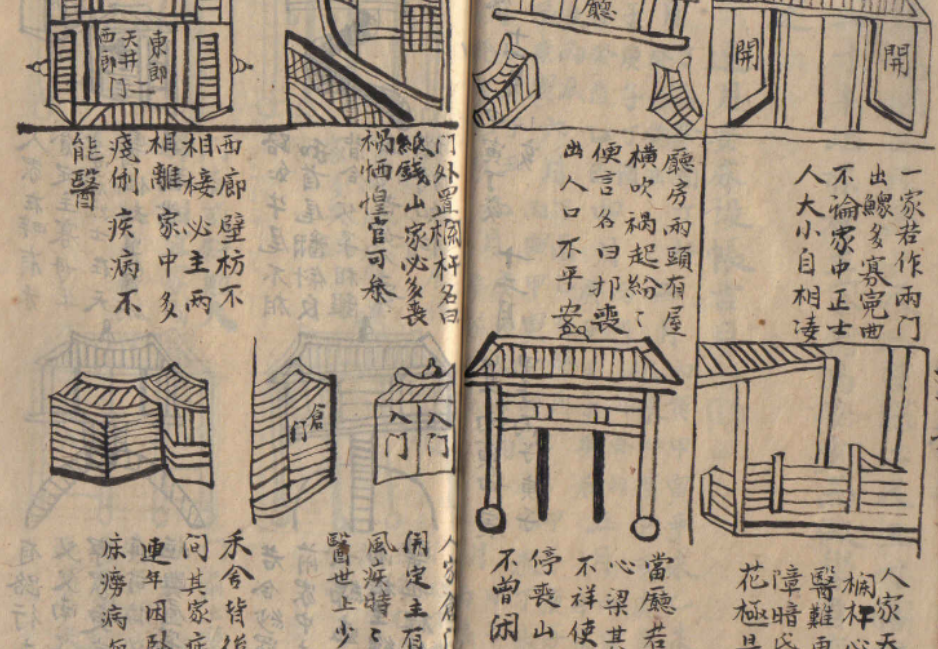 廳
開
開
一家若作兩門
出鰥多寡寃曲
不論家中正士
人大小自相凌
廳房兩頭有屋
横吹禍起紛〻
便言名曰扛喪
出人口不平安
人家天
欄杆心
醫難
障暗
花極是
當廳若
心梁其
不祥使
停喪山
不曾闲
東廊
天井二
西廊
门
门外置欄杆名曰
紙錢山家必多喪
禍恓惶官可叅
西廊壁枋不
相接必主兩
相離家中多
疾病不
能醫
入门
入门
倉门
人家倉门
開定主有
風疾時〻
醫世上少
禾舍皆後
问其家疾
連年困卧
床癆病